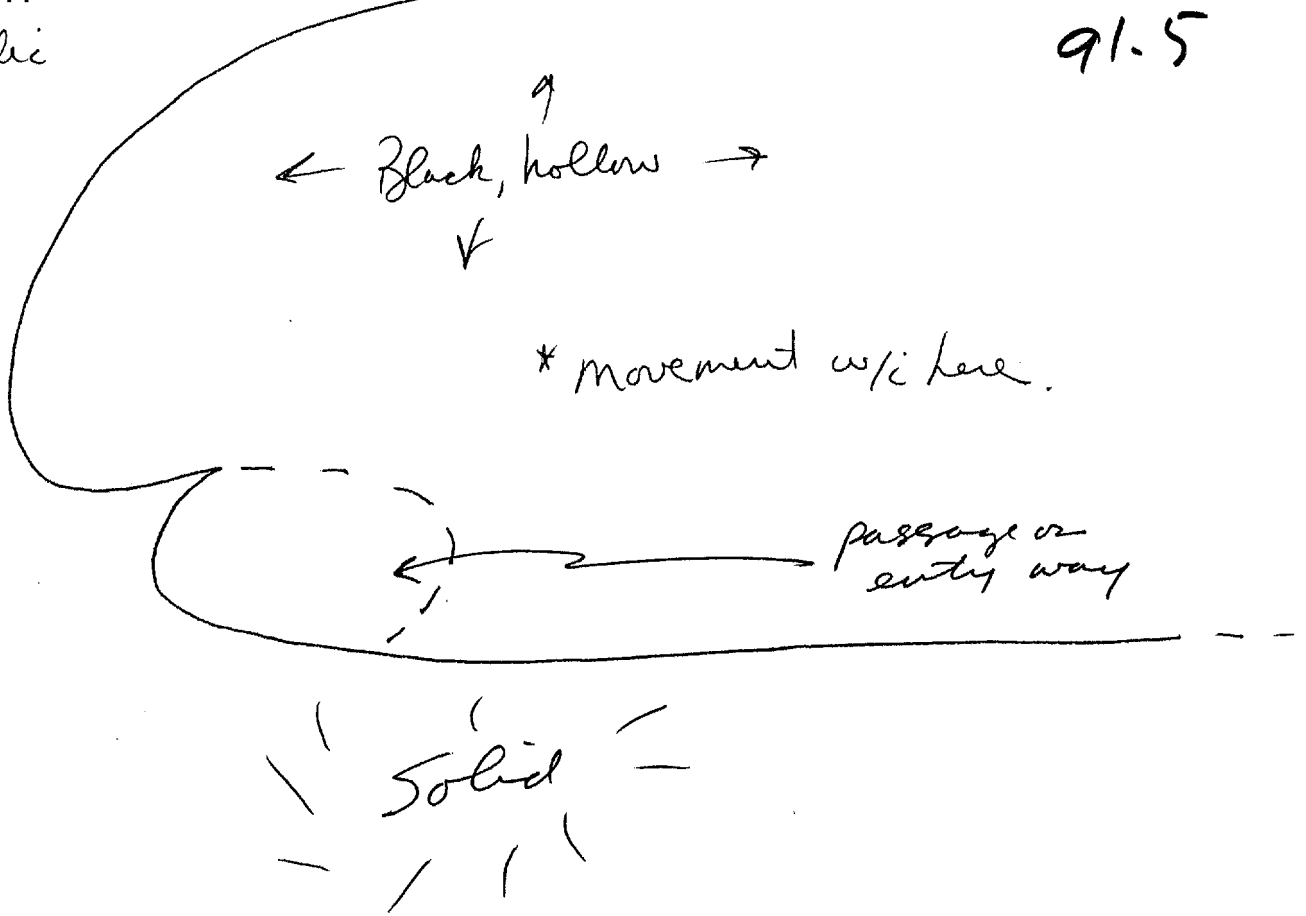 91.5
Black, hollow
* movement w/i here.
passage or
entry way
Solid